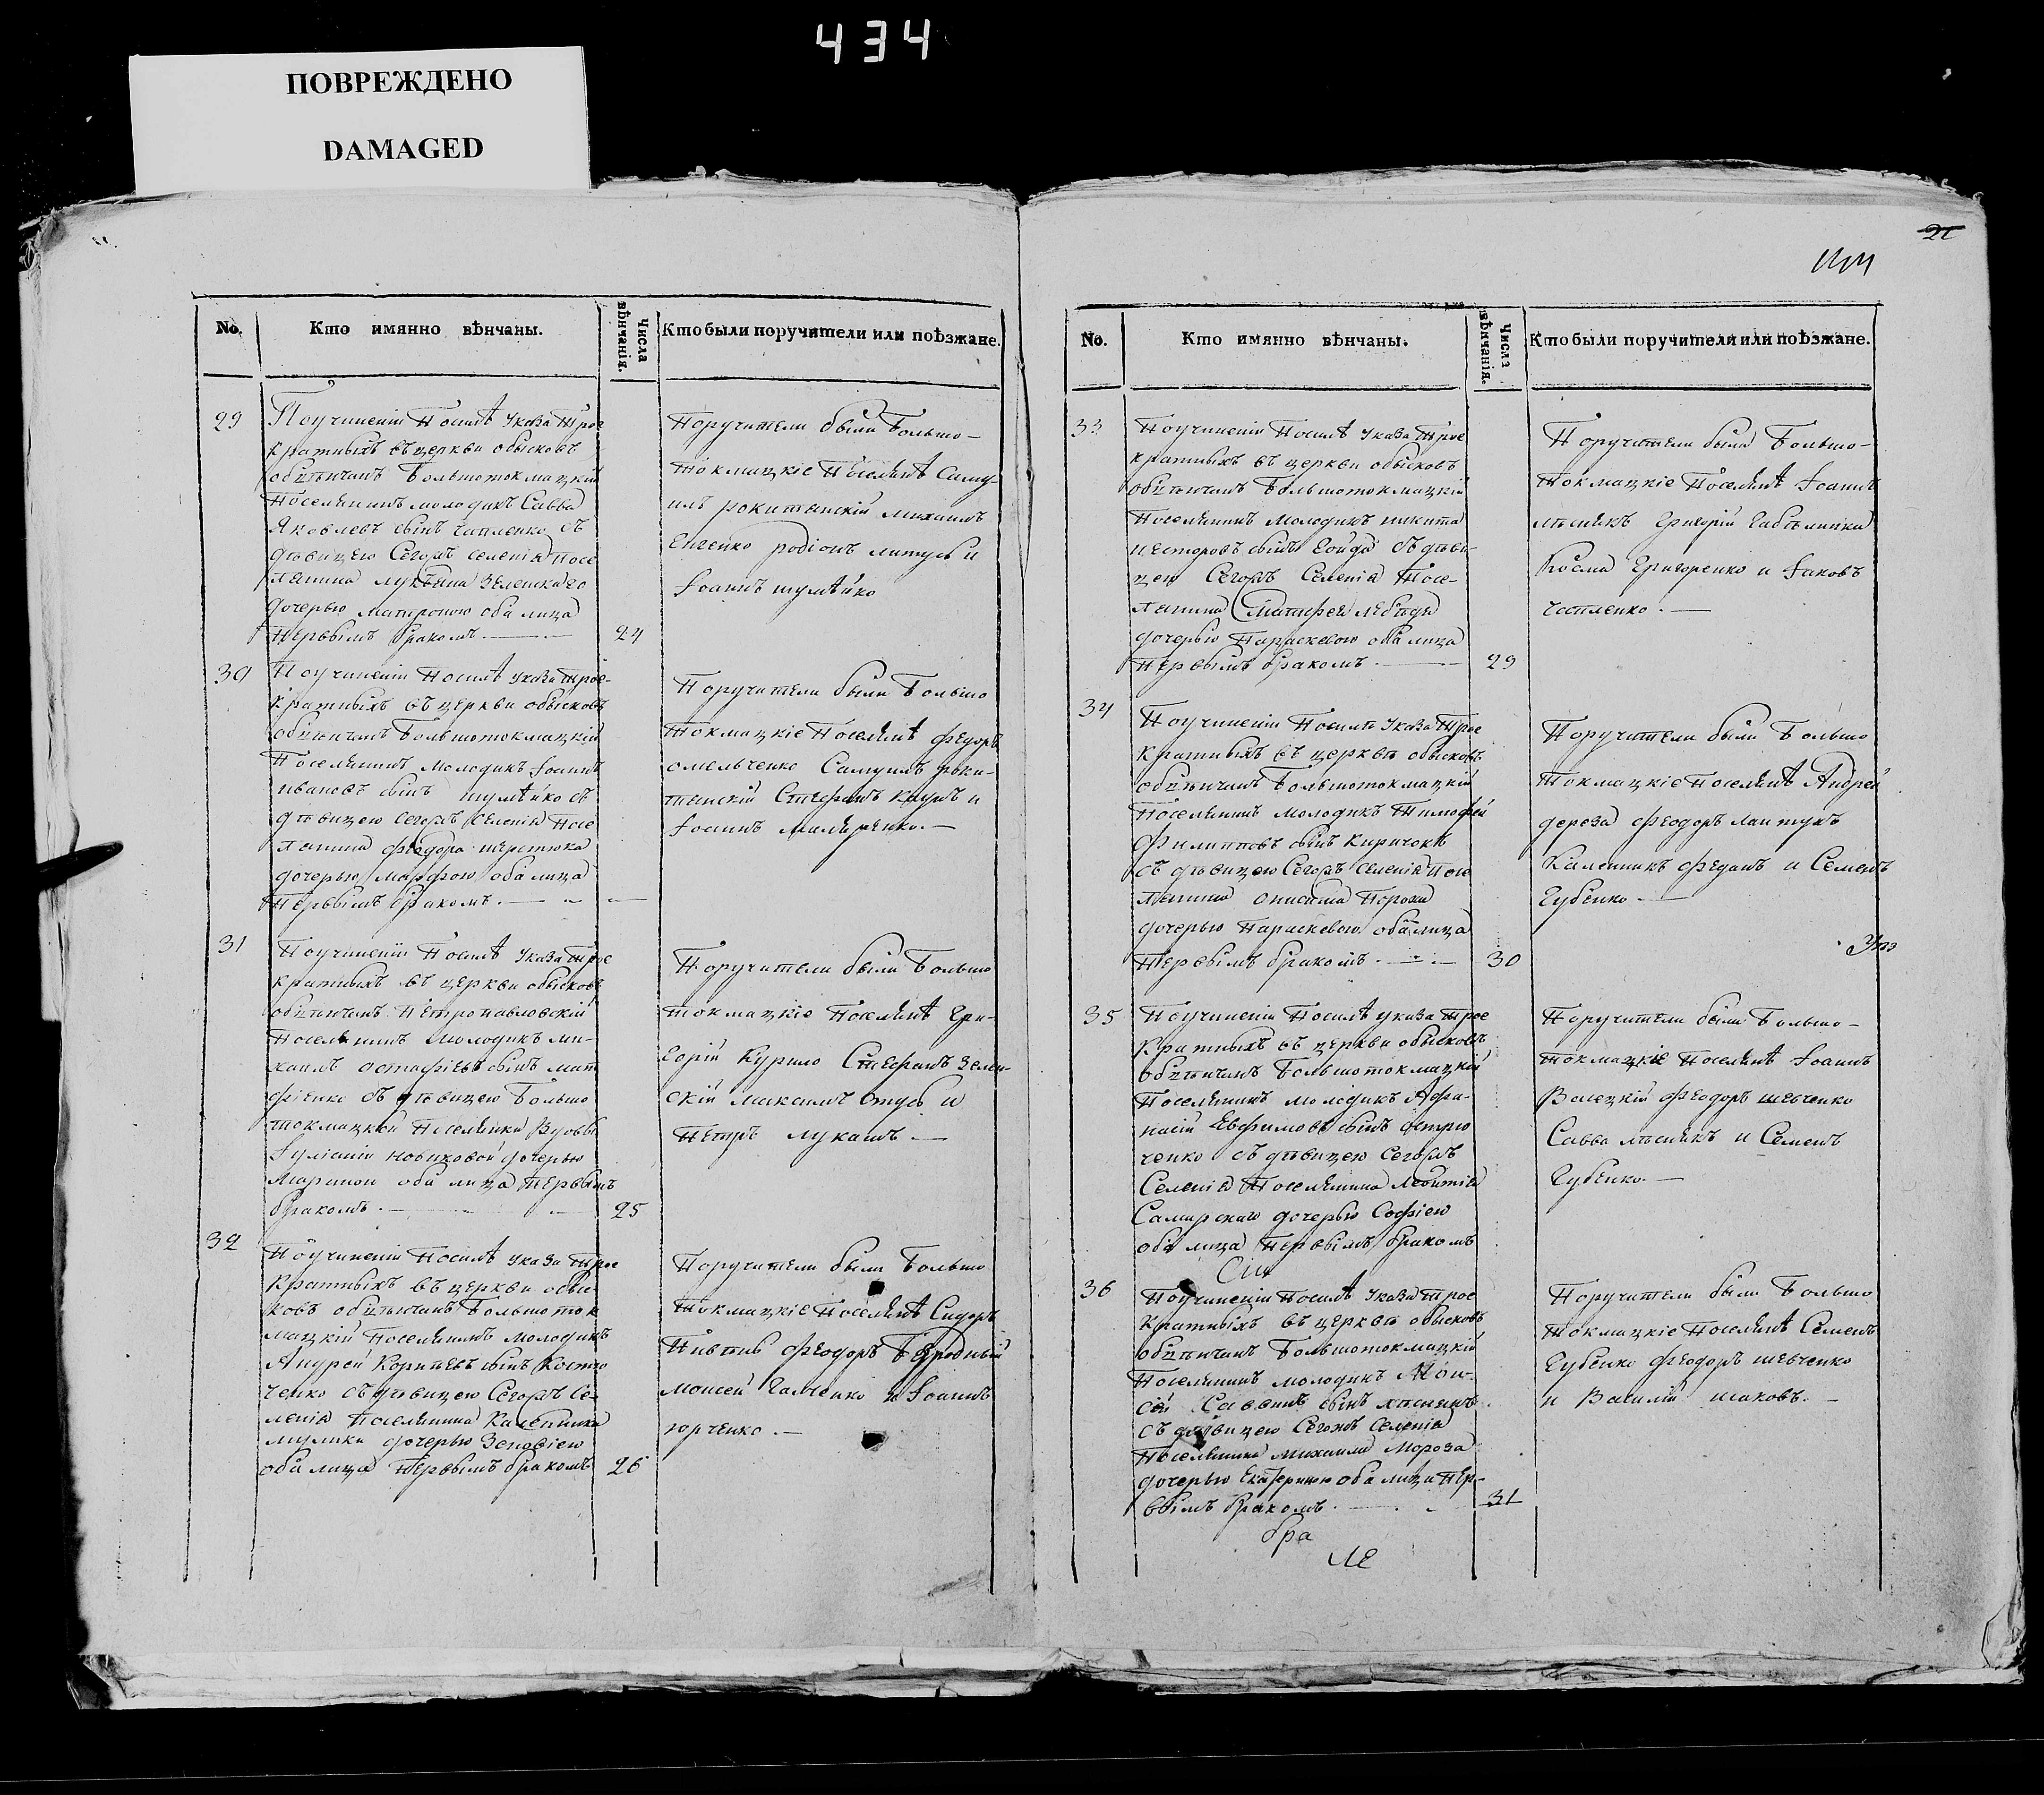 434
ПОВРЕЖДЕНО
DAMAGED
No.
Кто имянно вѣнчаны.
Числа вѣнчанія.
Кто были поручители или поѣзжане.
29
Поучиненіи Посилѣ указа Трое
кратныхъ въ церкви обысковъ
обвѣнчанъ Большотокмацкій
Поселянинъ молодикъ Савва
Яковлевъ сынъ Чапленко съ
дѣвицею Сегожъ селенія Посе
лянина Лукьяна Зеленскаго
дочерью Матроною оба лица
Первымъ бракомъ.
24
Поручители были Большо-
токмацкіе Поселянѣ Саму-
илъ рокитянскій михаилъ
родіонъ литусь и
Іоаннъ шулѣйко
30
Поучиненіи Посилѣ указа Трое-
кратныхъ въ церкви обысковъ
обвѣнчанъ Большотокмацкій
Поселянинъ молодикъ Іоаннъ
ивановъ сынъ шулѣйко съ
дѣвицею Сегожъ Селенія Посе
лянина Федора шерстюка
дочерью Марфою оба лица
Первымъ бракомъ.
Поручители были Большо
токмацкіе Поселянѣ Федоръ
омельченко Самуилъ роки-
тянскій Стефанъ и
Іоаннъ
31
Поучиненіи Посилѣ указа Трое
кратныхъ въ церкви обысковъ
обвѣнчанъ Петропавловскій
Поселянинъ молодикъ ми-
хаилъ остафіевъ сынъ мат
фіенко съ дѣвицею Большо
токмацкой Поселянки Вдовы
Іуліаніи новиковой дочерью
Мариной оба лица Первымъ
бракомъ.
25
Поручители были Большо
токмацкіе Поселянѣ Гри-
горій Курило Стефанъ Зелен-
скій максимъ Отусь и
Петръ лукашъ
32
Поучиненіи Посилѣ указа Трое
кратныхъ въ церкви обыс-
ковъ обвѣнчанъ Большоток
мацкій Поселянинъ молодикъ
Андрей Корнѣевъ сынъ Костю
ченко съ дѣвицею Сегожъ Се-
ленія Поселянина Каленника
мулики дочерью Зеновіею
оба лица Первымъ бракомъ
26
Поручители были Большо
токмацкіе Поселянѣ Сидоръ
Феодоръ Безродный
Моисей Галченко и Іоаннъ
юрченко.
21
No.
Кто имянно вѣнчаны.
Числа вѣнчанія.
Кто были поручители или поѣзжане.
33
Поучиненіи Посилѣ указа Трое
кратныхъ въ церкви обысковъ
обвѣнчанъ Большотокмацкій
Поселянинъ молодикъ никита
несторовъ сынъ Гойда съ дѣви-
цею Сегожъ Селенія Посе-
лянина Матфея лебедя
дочерью Параскевою оба лица
Первымъ бракомъ.
29
Поручители были Большо-
токмацкіе Поселянѣ Іоаннъ
лѣсникъ Григорій
Косма Григоренко и Іаковъ
чапленко.
34
Поучиненіи Посилѣ указа Трое
кратныхъ въ церквѣ обысковъ
обвѣнчанъ Большотокмацкій
Поселянинъ молодикъ Тимофей
Филипповъ сынъ Киричокъ
съ дѣвицею Сегожъ Селенія Посе
лянина Онисима Пороха
дочерью Параскевою оба лица
Первымъ бракомъ.
30
Поручители были Большо
токмацкіе Поселянѣ Андрей
дереза Феодоръ лантухъ
Каленникъ Феданъ и Семенъ
Губенко
35
Поучиненіи Посилѣ указа Трое
кратныхъ въ церкви обысковъ
обвѣнчанъ Большотокмацкій
Поселянинъ молодикъ Афа-
насій Евфимовъ сынъ Остро
ченко съ дѣвицею Сегожъ
Селенія Поселянина Леонтія
Самарскаго дочерью Софіею
оба лица Первымъ бракомъ
Поручители были Большо-
токмацкіе Поселянѣ Іоаннъ
Феодоръ шевченко
Савва лѣсникъ и Семенъ
Губенко.
36
Поучиненіи Посилѣ указа Трое
кратныхъ въ церквѣ обысковъ
обвѣнчанъ Большотокмацкій
Поселянинъ молодикъ Мои-
сей Саввинъ сынъ лѣсникъ
съ дѣвицею Сегожъ Селенія
Поселянина михаила Мороза
дочерью Екатериною оба лица Пер-
вымъ бракомъ.
31
Поручители были Большо
токмацкіе Поселянѣ Семенъ
Губенко Феодоръ шевченко
и Василій шаковъ.
бра